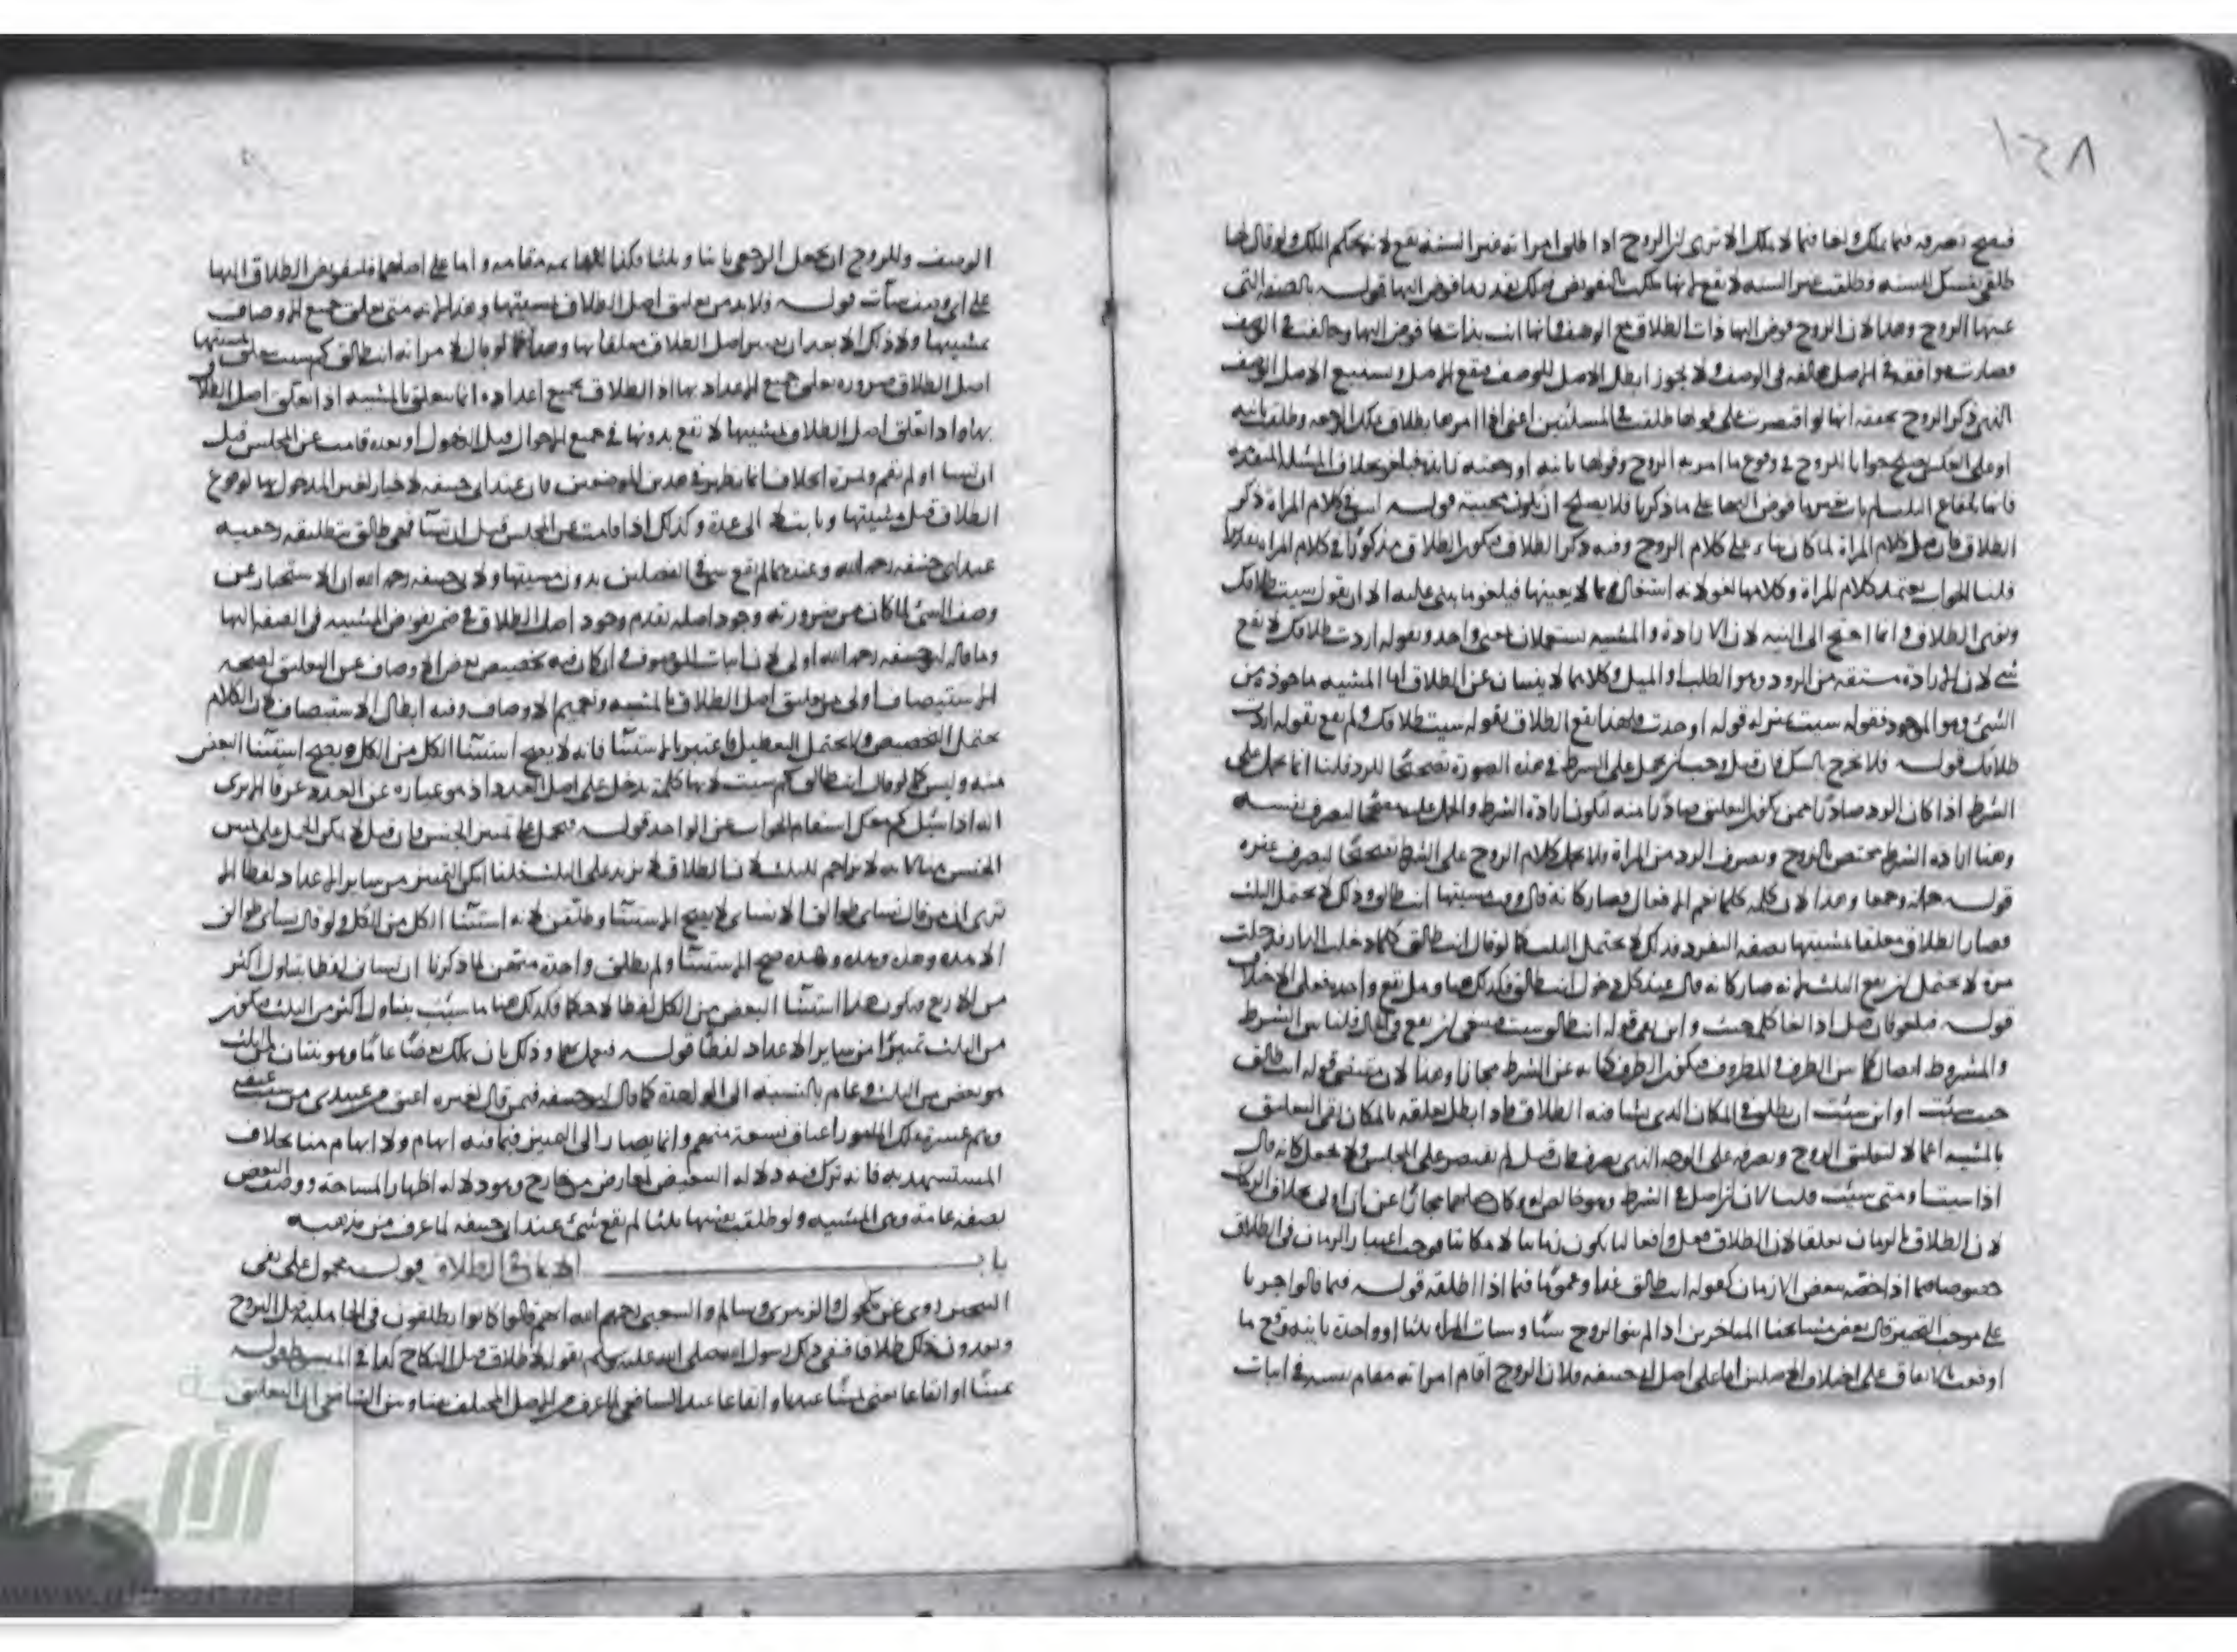 ١٤٨
فيصح تصرفه فيما يملك ولغا فيما لا يملك الا ترى ان الزوج اذا طلق امراته غير السنة يقع لانه بحكم الملك ولو قال لها
طلقي نفسك للسنة فطلقت غير السنة لا يقع لانها ملكت بالتفويض فيملك بقدر ما فوض اليها قوله بالصفة التي
عينها الزوج وهذا لان الزوج فوض اليها ذات الطلاق مع الوصف فانها اتت بذات ما فوض اليها وخالفت في الوصف
فصارت موافقة في الاصل مخالفة في الوصف ولا يجوز ابطال الاصل للوصف فيقع الاصل ويستتبع الاصل الوصف
الذي ذكر الزوج يحققه انها لو اقتصرت على قولها طلقت في المسئلتين اعني اذا امرها بطلاق يملك الرجعة وطلقت بائنة
او على العكس جوابا للزوج في وقوع ما امر به الزوج وقولها بائنة او رجعية فيلغو بخلاف المسئلة المتقدمة
فانها بايقاع الثلث لم تات بشيء مما فوض اليها على ما ذكرنا فلا يصلح ان تكون مجيبة قوله ليس في كلام المراة ذكر
الطلاق فان قيل كلام المراة لما كان بناء على كلام الزوج وفيه ذكر الطلاق فيكون الطلاق مذكورا في كلام المراة تقديرا
قلنا الجواب يعتمد كلام المراة وكلامها لغو لانه اشتغال بما لا يعنيها فيلغو ما يبنى عليه الا ان يقول شئت طلاقك
ونوى الطلاق وانما احتيج الى النية لان الارادة والمشية تستعملان بمعنى واحد وبقوله اردت طلاقك لا يقع
شئ لان الارادة مشتقة من الرود وهو الطلب والميل وكلاهما لا ينبيان عن الطلاق اما المشية ماخوذة من
الشئ وهو الموجود فقوله شئت بمنزلة قوله اوجدت فلهذا يقع الطلاق بقوله شئت طلاقك ولم يقع بقوله اردت
طلاقك قوله فلا يخرج بالشك فان قيل وجب ان يحمل على الشرط في هذه الصورة تصحيحا للرد قلنا انما يحمل على
الشرط اذا كان الرد صادرا ممن يكون التعليق صادرا منه لتكون ارادة الشرط والحمل عليه مصححا لتصرف نفسه
وهنا ارادة الشرط مختص بالزوج وتصرف الرد من المراة فلا يحمل كلام الزوج على الشرط تصحيحا لتصرف غيره
قوله جملة وجمعا وهذا لان كلمة كلما تعم الافعال فصار كانه قال وقت مشيتها انت طالق وذلك لا يحتمل الثلث
فصار الطلاق معلقا بمشيتها بصفة التفرد فذلك لا يحتمل الثلث كما لو قال انت طالق كلما دخلت الدار فدخلت
مرة لا يحتمل ان يقع الثلث لانه صار كانه قال عند كل دخول انت طالق فكذلك هنا وهل يقع واحدة فعلى الاختلاف
قوله فيلغو فان قيل اذا لغا كلمة حيث واين بقي قوله انت طالق شئت فينبغي ان يقع في الحال قلنا بين الشرط
والمشروط اتصال كما بين الظرف والمظروف فيكون الظرف كناية عن الشرط مجازا وهذا لان مقتضى قوله انت طالق
حيث شئت او اين شئت ان يطلق في المكان الذي يشا فيه الطلاق فاذا بطل تعلقه بالمكان بقي التعليق
بالمشية اعمالا لتعليق الزوج وتصرفه على الوجه الذي تصرف فان قيل لم يقتصر على المجلس ولا يجعل كانه قال
اذا شئت او متى شئت قلنا لان ان اصل في الشرط وهو خالص له وكان جعلها مجازا عن ان اولى بخلاف الزمان
لان الطلاق بالزمان تعلقا لان الطلاق فعل وافعالنا يكون زمانيا لا مكانيا فوجب اعتبار الزمان في الطلاق
خصوصا فيما اذا خصه ببعض الازمان كقوله انت طالق غدا وعموما فيما اذا اطلقه قوله فيما قالوا جريا
على موجب التخيير قال بعض مشايخنا المتاخرين اذا لم ينو الزوج شيا وشات المراة ثلثا او واحدة بائنة وقع ما
اوقعت بالاتفاق على اختلاف الاصلين اما على اصل ابي حنيفة فلان الزوج اقام امراته مقام نفسه في اثبات
الوصف وللزوج ان يجعل الرجعي بائنا وثلثا فكذا لمن قام مقامه واما على اصلهما فلتفويض الطلاق اليها
على اي وصف شات قوله فلا بد من تعليق اصل الطلاق بمشيتها وهذا لانه متى تعلق جميع الاوصاف
بمشيتها ولا ذلك الا بعد ان يصير اصل الطلاق معلقا بها وصار كما لو قال لامراته انت طالق كم شئت تعلق بمشيتها
اصل الطلاق ضرورة تعلق جميع الاعداد بها اذ الطلاق بجميع اعداده انما يتعلق بالمشية اذا تعلق اصل الطلاق
بها واذا تعلق اصل الطلاق بمشيتها لا يقع بدونها في جميع الاحوال قبل الدخول او بعده قامت عن المجلس قبل
ان تشا او لم تقم وثمرة الخلاف انما يظهر في هذين الموضعين فان عند ابي حنيفة لا خيار لغير المدخول بها لوقوع
الطلاق قبل مشيتها وبانت لا الى عدة وكذلك اذا قامت عن المجلس قبل ان تشا فهي طالق تطليقة رجعية
عند ابي حنيفة رحمه الله وعندهما لم يقع شئ في الفصلين بدون مشيتها ولابي حنيفة رحمه الله ان الاستخبار عن
وصف الشئ لما كان من ضرورته وجود اصله تقدم وجود اصل الطلاق في ضمن تفويض المشية في الصفة اليها
وما قاله ابو حنيفة رحمه الله اولى لان اثبات الموصوف وان كان فيه تخصيص بعض الاوصاف عن التعليق لصحة
الاستيصاف اولى من تعليق اصل الطلاق بالمشية وتعميم الاوصاف وفيه ابطال الاستيصاف لان الكلام
يحتمل التخصيص ولا يحتمل التعطيل فاعتبر بالاستثنا فانه لا يصح استثنا الكل من الكل ويصح استثنا البعض
منه وليس كما لو قال انت طالق كم شئت لانها كلمة يدخل على اصل العدد اذ هو عبارة عن العدد عرفا الا ترى
انه اذا سئل كم معك استقام الجواب عن الواحد قوله فيحمل على تمييز الجنس فان قيل لا يمكن الحمل على تمييز
الجنس هنا لانه لا مزاحم للثلث لان الطلاق لا يزيد على الثلث قلنا امكن التمييز من ساير الاعداد لفظا الا
ترى ان من قال نساي طوالق الا نساي لا يصح الاستثنا وطلقن لانه استثنا الكل من الكل ولو قال نساي طوالق
الا هذه وهذه وهذه وهذه صح الاستثنا ولم يطلق واحدة منهن لما ذكرنا ان نساي لفظا يتناول اكثر
من الاربع فيكون هذا استثنا البعض من الكل لفظا لا حكما فكذلك هنا ما شئت يتناول اكثر من الثلث فيكون
من الثلث تمييزا من ساير الاعداد لفظا قوله فيعمل بهما وذلك بان يملك بعضا عاما وهو ثنتان لان الثلث
هو بعض من الثلث وعام بالنسبة الى الواحدة كما قال ابو حنيفة فيمن قال لغيره اعتق من عبيدي من شئت
وهم عشرة يملك المامور اعتاق تسعة منهم وانما يصار الى التعيين فيما فيه ابهام ولا ابهام هنا بخلاف
المستشهد به فانه ترك فيه دلالة التبعيض لمعارض من خارج وهو دلالة اظهار السماحة ووصف البعض
بصفة عامة وهي المشية ولو طلقت نفسها ثلثا لم يقع شئ عند ابي حنيفة لما عرف من مذهبه
باب الايمان في الطلاق قوله محمول على نفي
التنجيز روي عن مكحول والزهري وسالم والشعبي رحمهم الله انهم قالوا كانوا يطلقون في الجاهلية قبل التزوج
ويعدون ذلك طلاقا فنفى ذلك رسول الله صلى الله عليه وسلم بقوله لا طلاق قبل النكاح كذا في المبسوط قوله
يمينا او ايقاعا يعني يمينا عندنا وايقاعا عند الشافعي لما عرف من الاصل المختلف بيننا وبين الشافعي ان التعليق